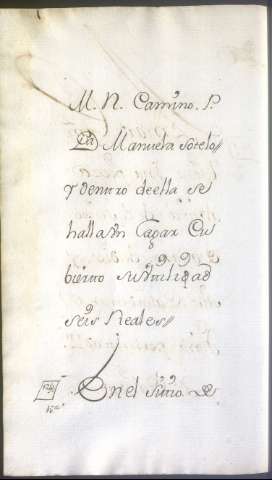 M. N. Camino. P.
Da Manuela sotelo//
y dentro de ella se
halla Un Tapar Cu
bierto su utilidad
seis Reales//
En el sitio de